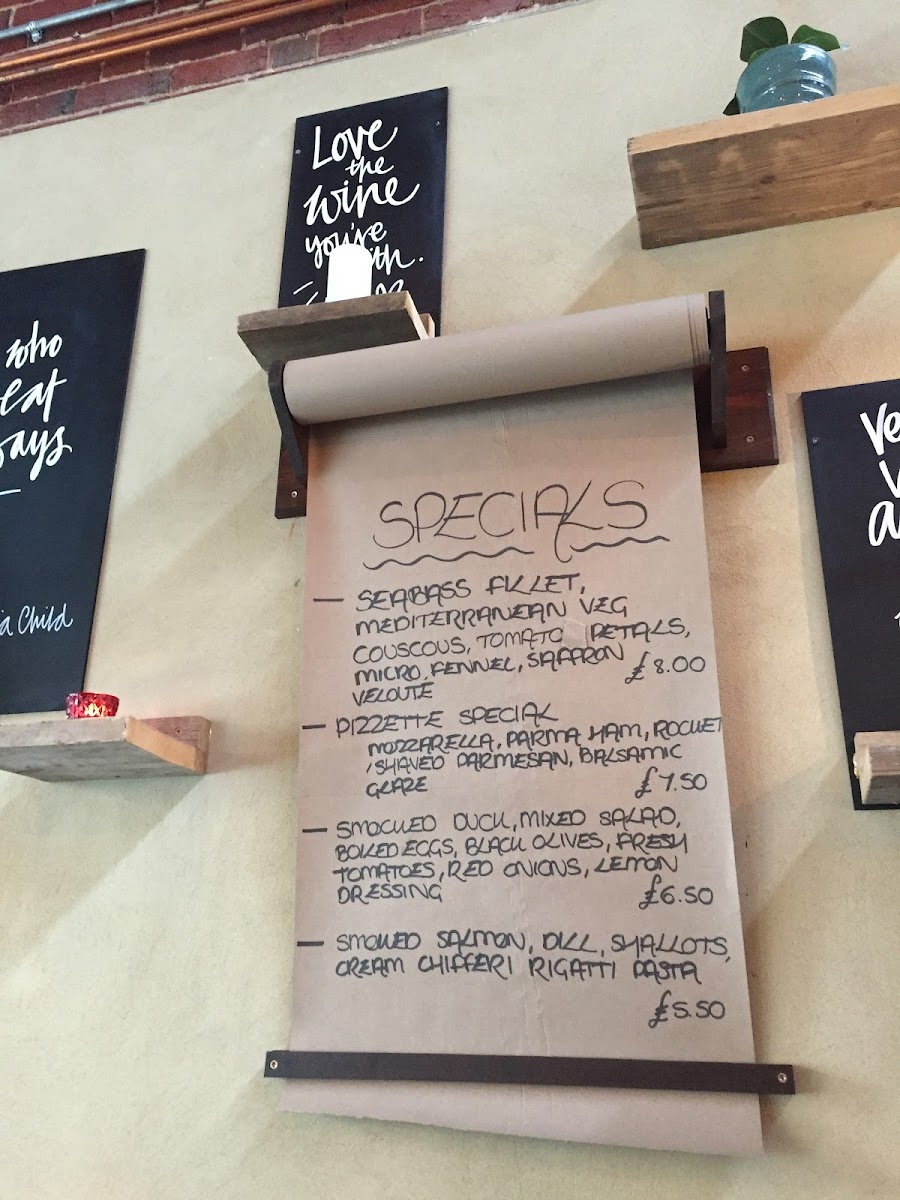 Love
the
wine
you're
with.
who
eat
Child
SPECIALS
— SEABASS FILLET,
MEDITERRANEAN VEG
COUSCOUS, TOMATO PETALS,
MICRO FENNEL, SAFFRON
VELOUTE £8.00
— PIZZETTE SPECIAL
MOZZARELLA, PARMA HAM, ROCKET
, SHAVED PARMESAN, BALSAMIC
GLAZE £7.50
— SMOCKED DUCK, MIXED SALAD,
BOILED EGGS, BLACK OLIVES, FRESH
TOMATOES, RED ONIONS, LEMON
DRESSING £6.50
— SMOKED SALMON, DILL, SHALLOTS,
CREAM CHIFFERI RIGATTI PASTA
£5.50